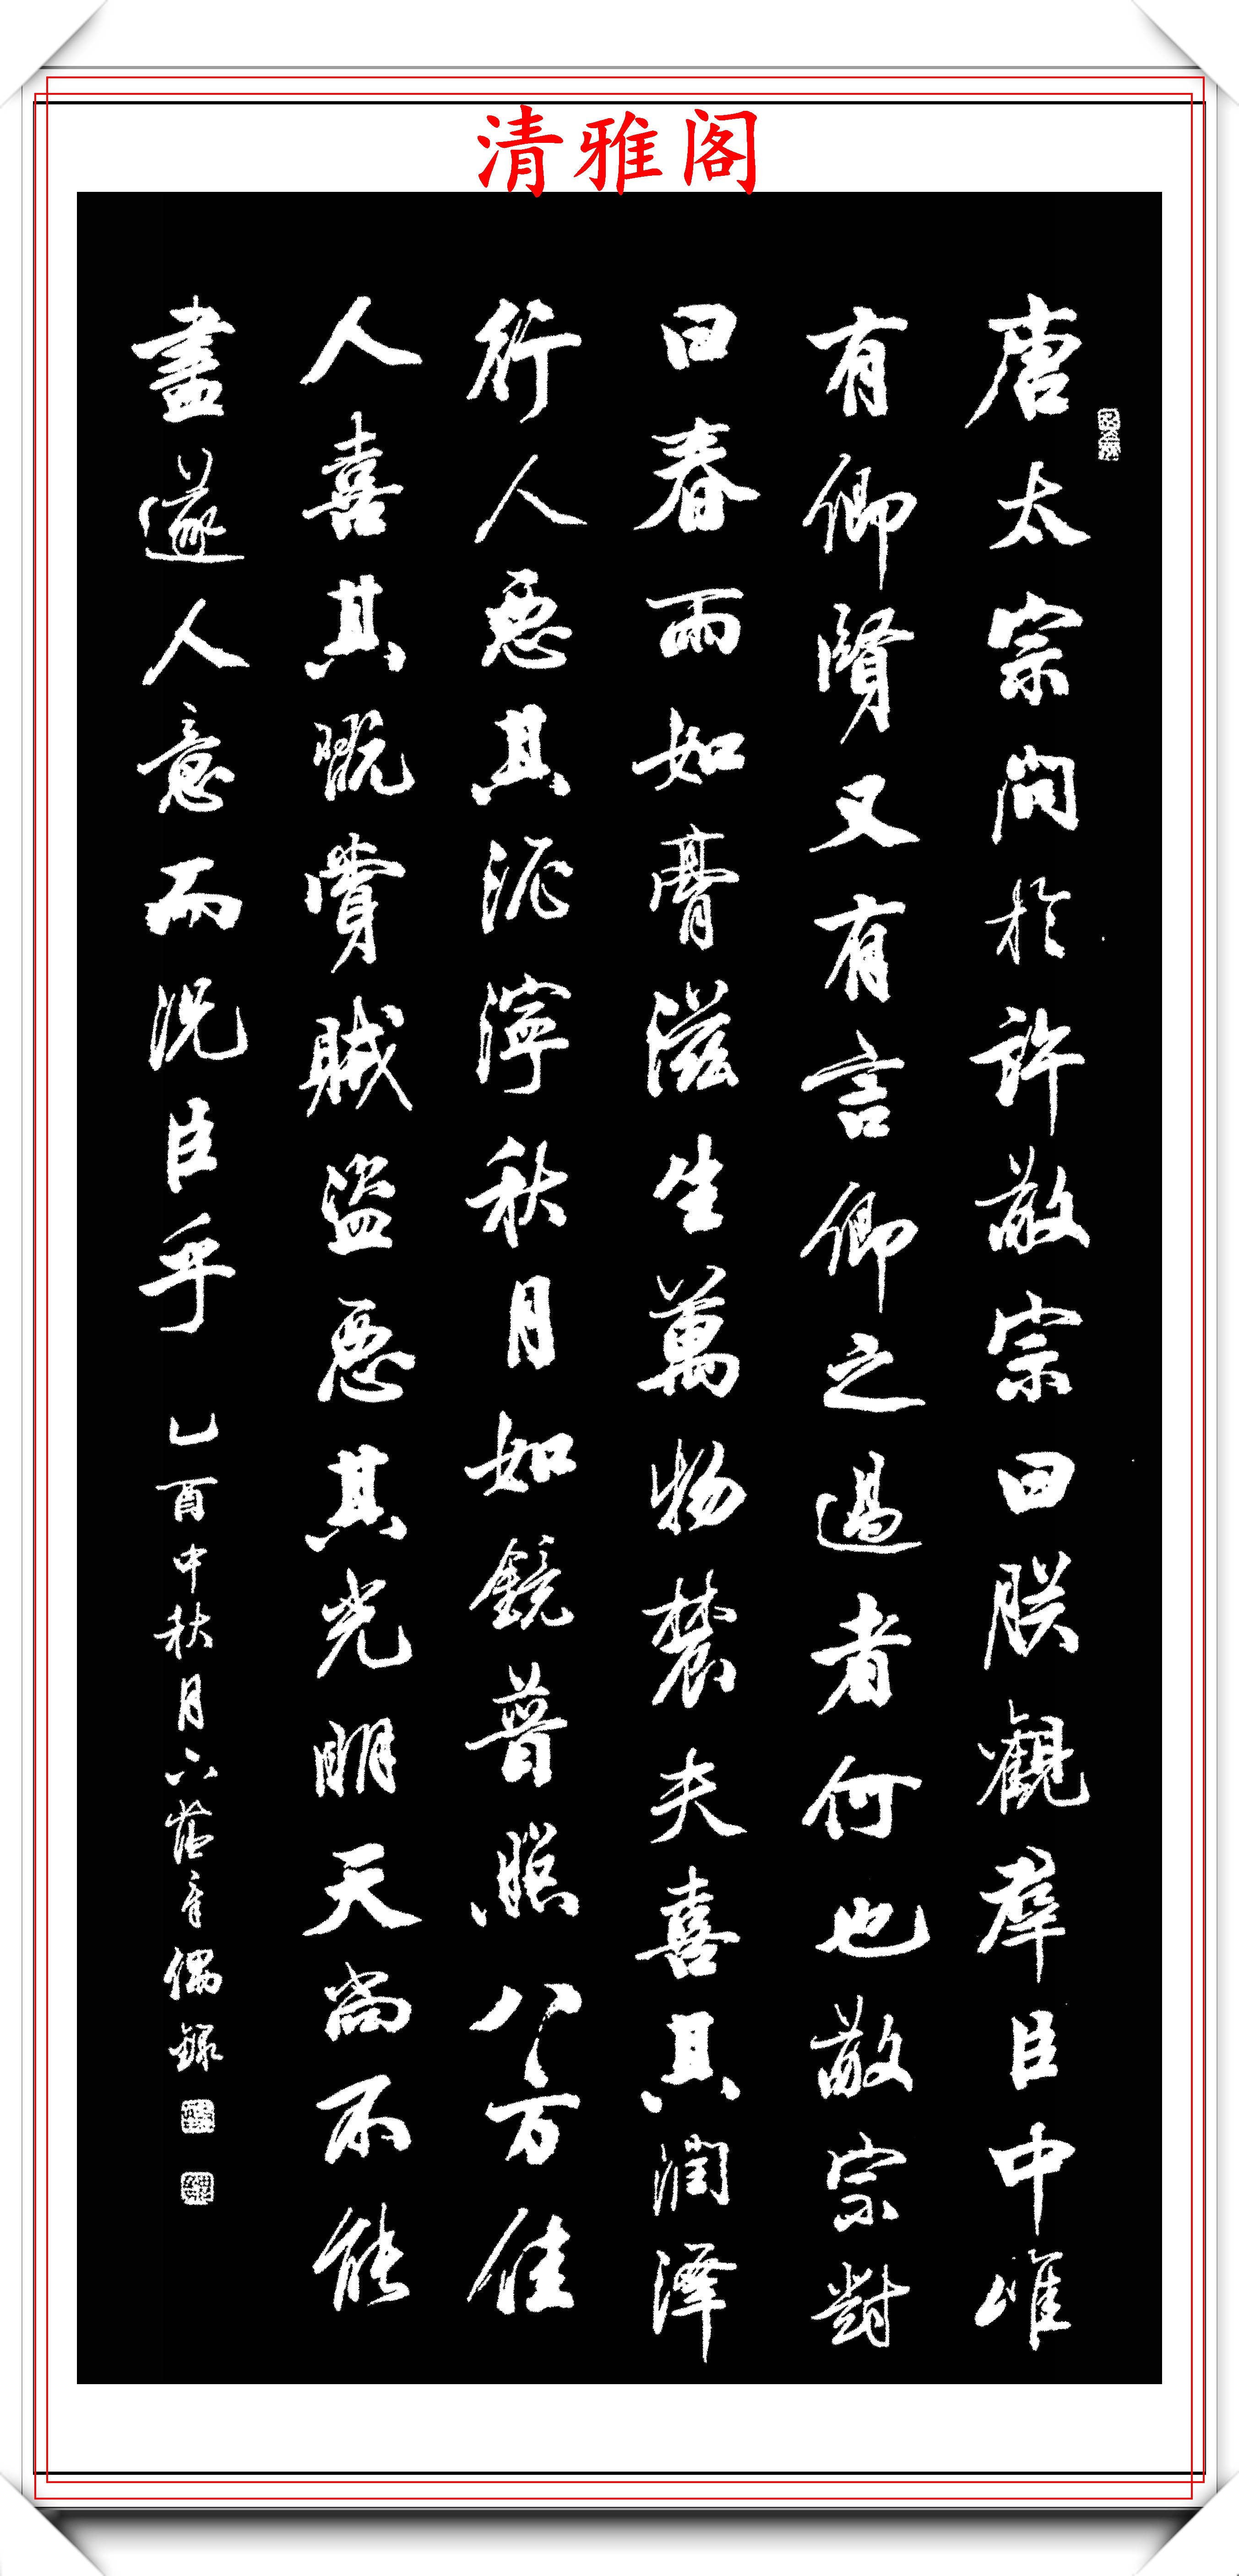 清雅阁
唐太宗問於許敬宗曰朕觀羣臣中唯
有卿賢又有言卿之過者何也敬宗對
曰春雨如膏滋生萬物農夫喜其潤澤
行人惡其泥濘秋月如鏡普照八方佳
人喜其晥賞賊盜惡其光明天尚不能
盡遂人意而況臣乎
乙酉中秋月六 章偶錄